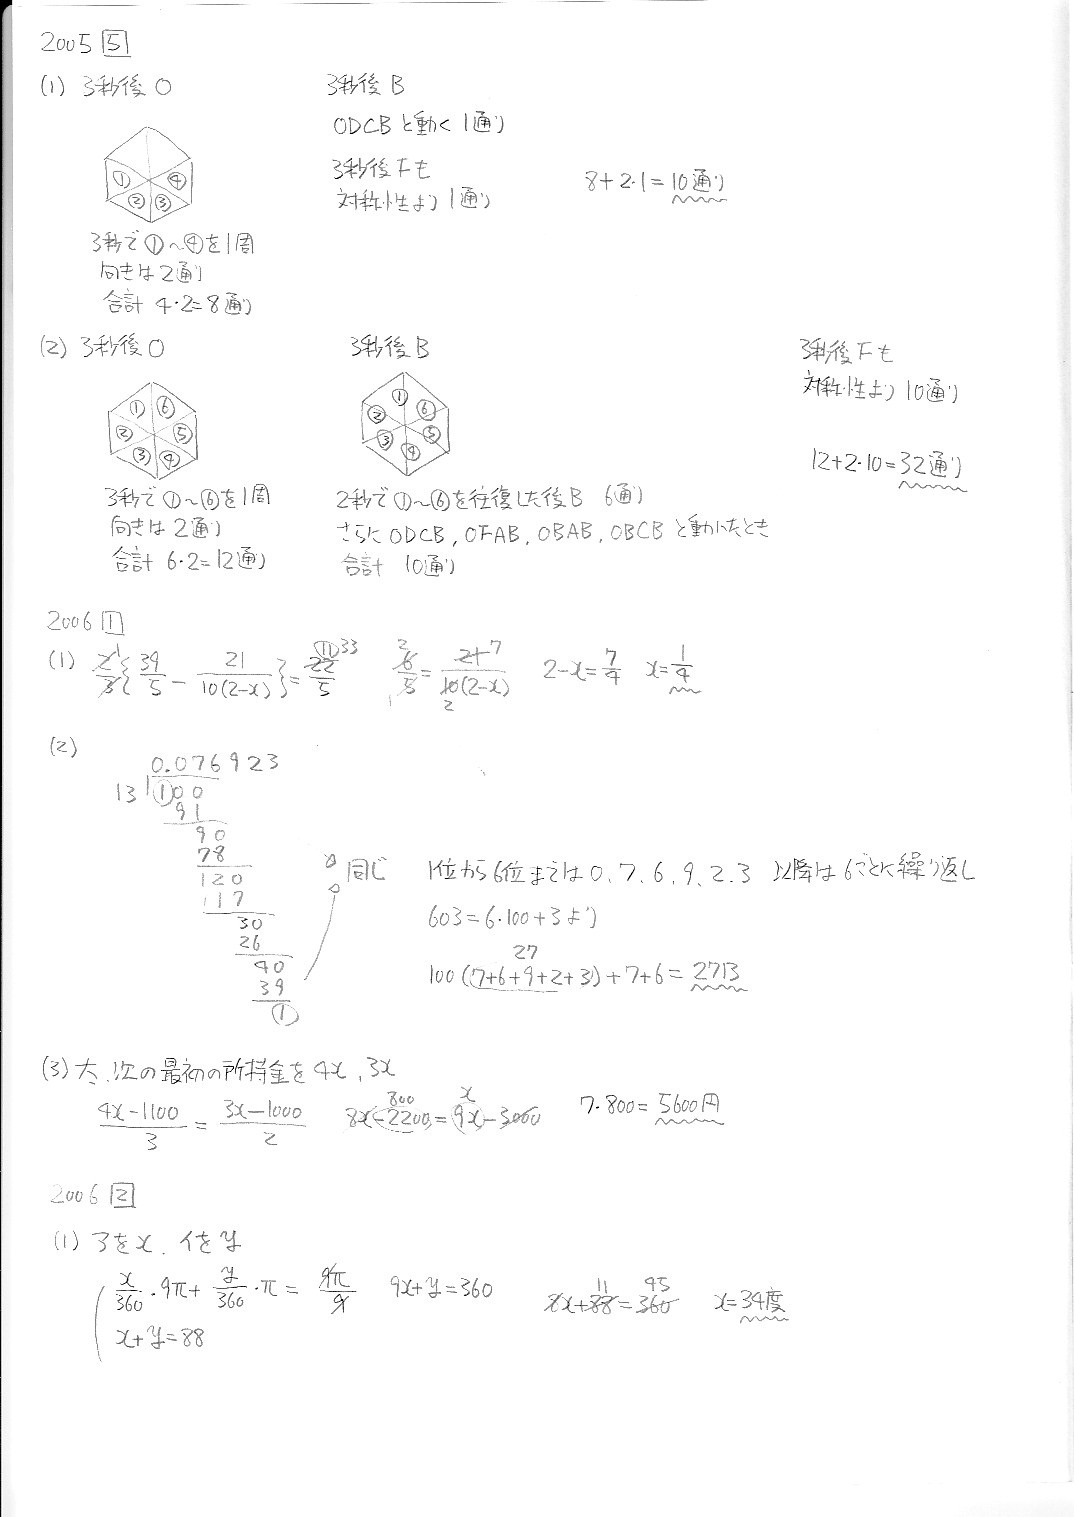 2005 5
(1) 3秒後 O
① ② ③ ④
3秒で①~④を1周
向きは2通り
合計 4・2=8通り
3秒後 B
ODCB と動く 1通り
3秒後 Fも
対称性より 1通り
8+2・1=10通り
(2) 3秒後 O
① ② ③ ④ ⑤ ⑥
3秒で①~⑥を1周
向きは2通り
合計 6・2=12通り
3秒後 B
① ② ③ ④ ⑤ ⑥
2秒で①~⑥を往復した後B 6通り
さらに ODCB, OFAB, OBAB, OBCB と動いたとき
合計 10通り
3秒後 Fも
対称性より 10通り
12+2・10=32通り
2006 1
(1) 2/3{39/5 - 21/10(2-x)}=22/5 1 11 33
6/5=21/10(2-x) 2 1 7 2
2-x=7/4 x=1/4
(2)
0.076923
13 100
91
90
78
120
117
30
26
40
39
①
同じ
1位から6位までは0、7、6、9、2、3 以降は6ごとに繰り返し
603=6・100+3より
27
100(7+6+9+2+3)+7+6=2713
(3) 大、次の最初の所持金を4x、3x
4x-1100/3=3x-1000/2
800 x
8x-2200=9x-3000
7・800=5600円
2006 2
(1) アをx、イをy
x/360・9π+y/360・π=9π/9 9x+y=360
x+y=88
11 45
8x+88=360 x=34度